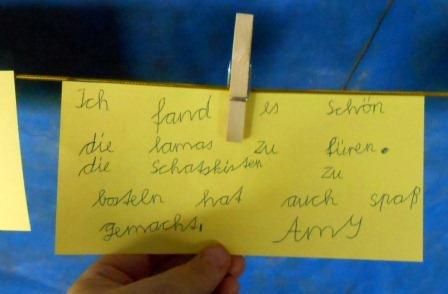 Ich fand es schön
die lamas zu füren.
die Schatskisten zu
basteln hat auch spaß
gemacht. Amy